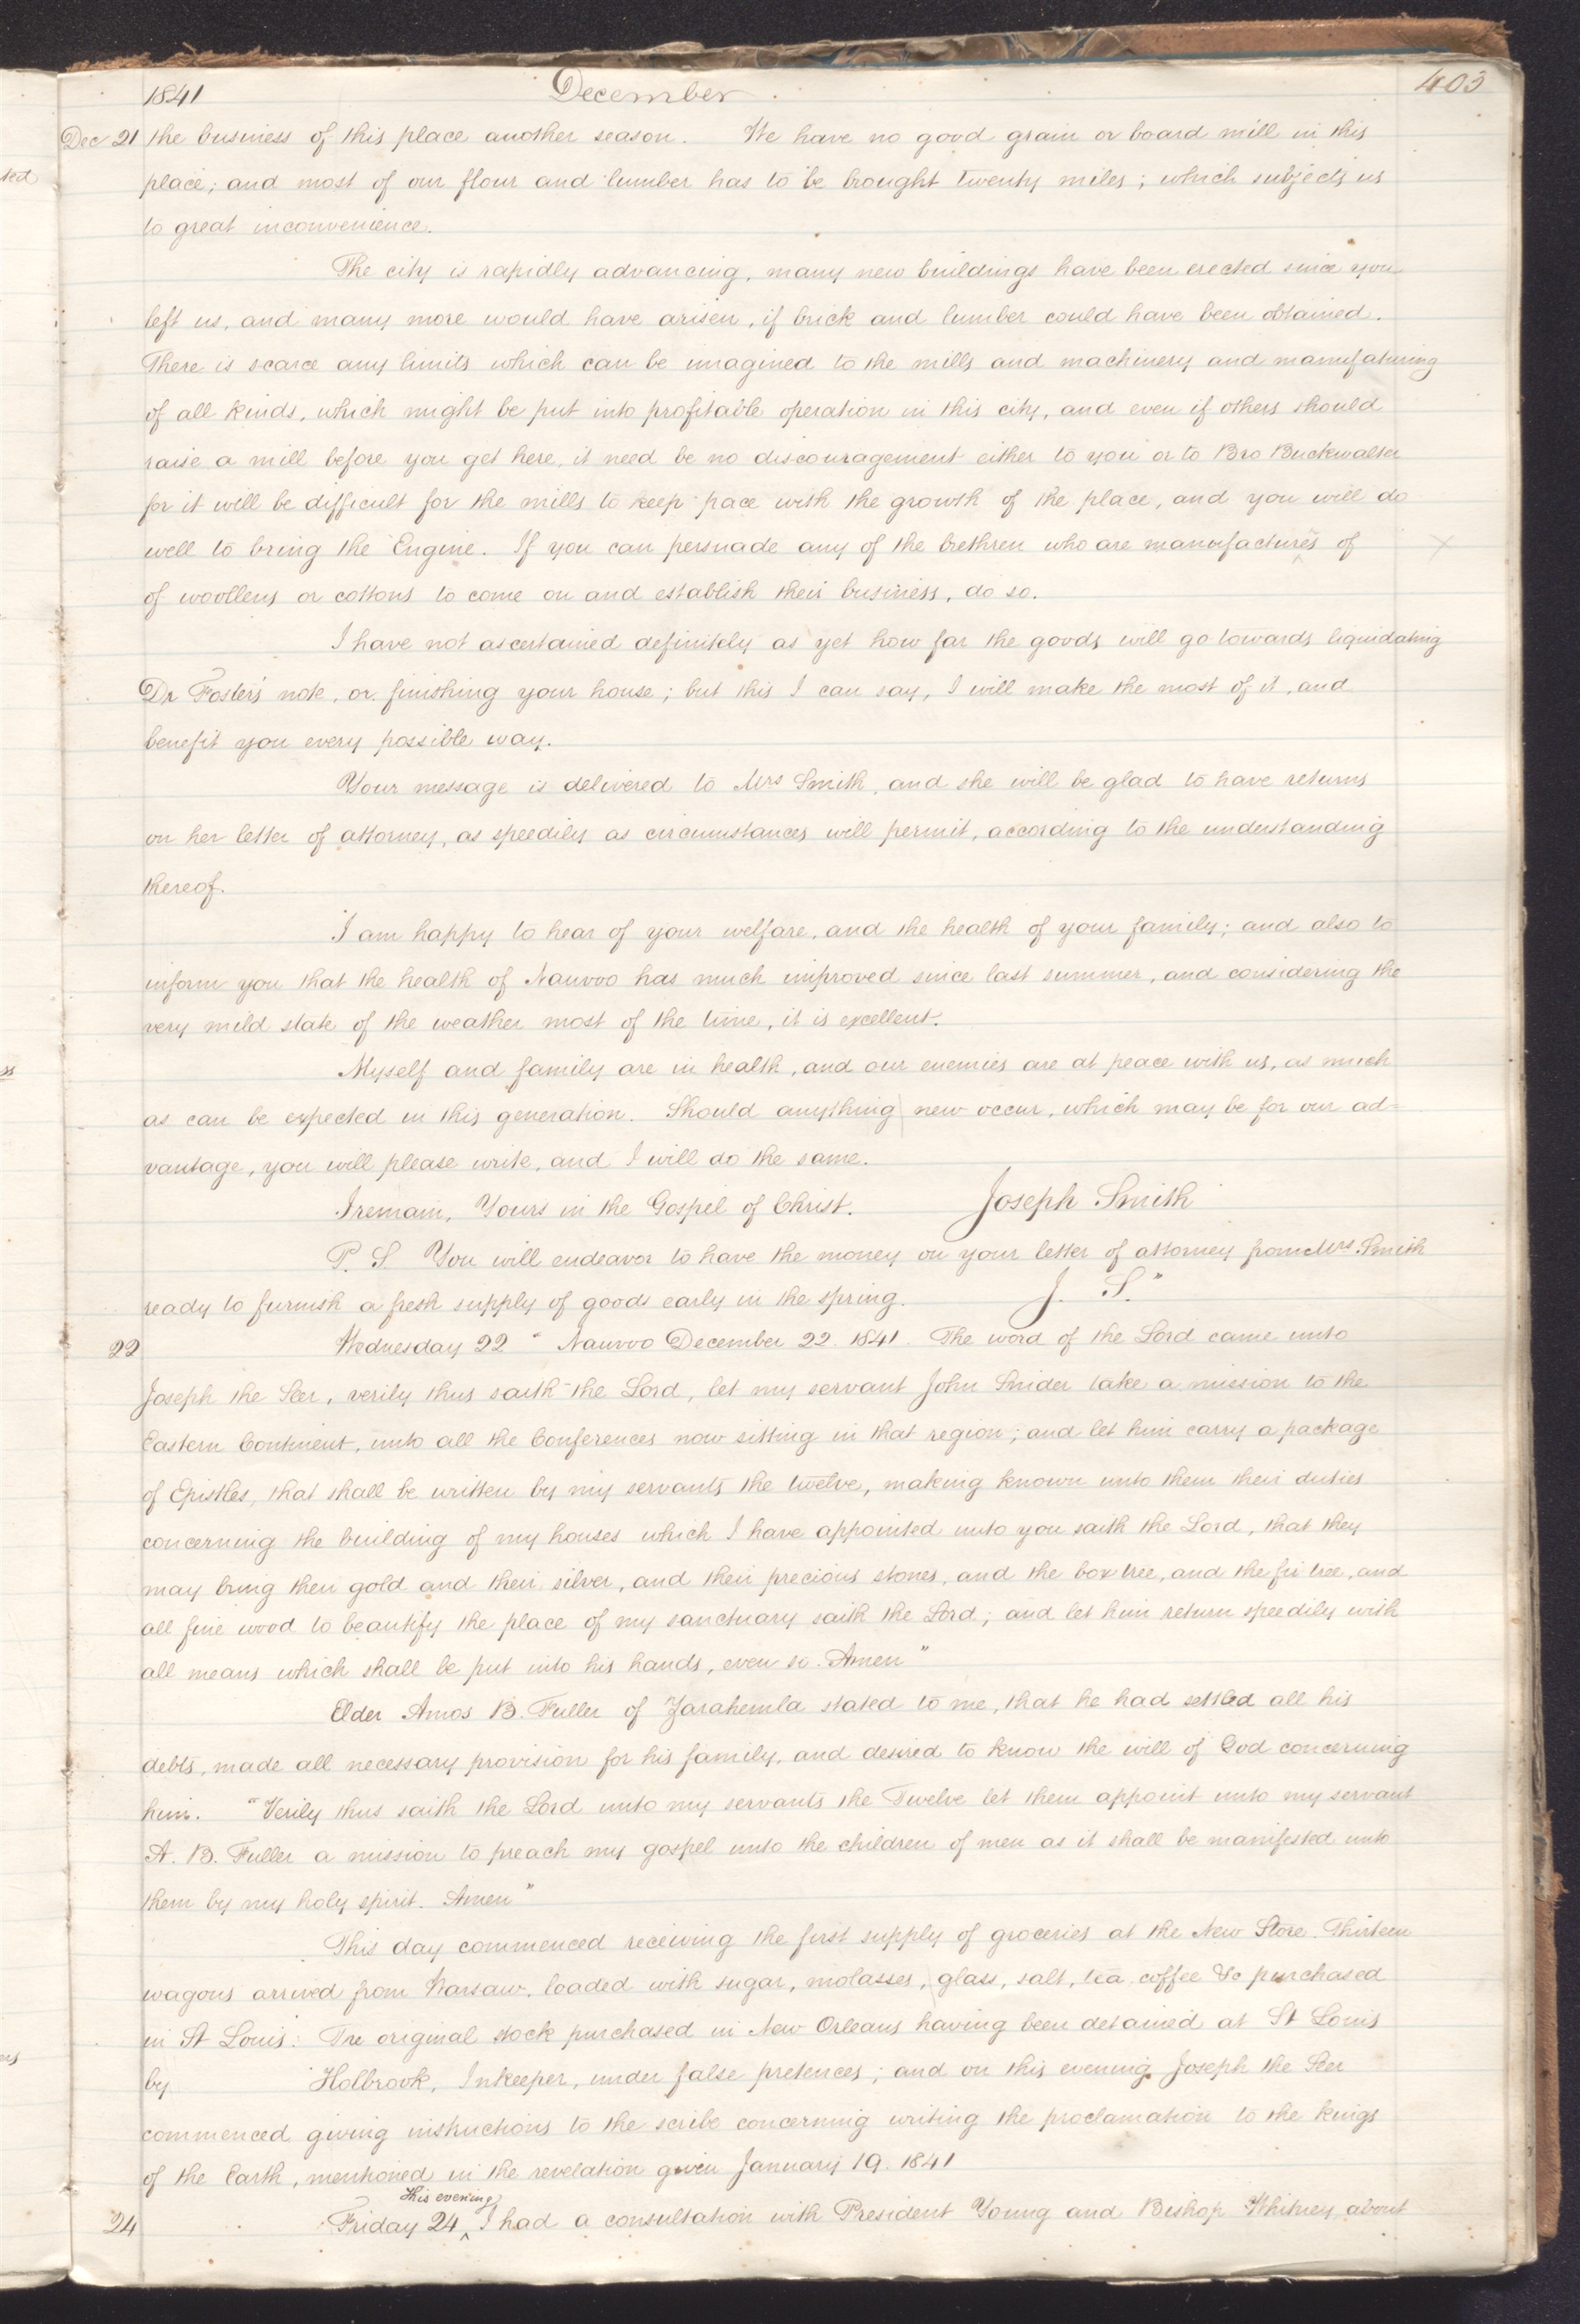 1841 December 403
Dec 21 the business of this place another season. We have no good grain or board mill in this
place; and most of our flour and lumber has to be brought twenty miles; which subjects us
to great inconvenience.
The city is rapidly advancing, many new buildings have been erected since you
left us, and many more would have arisen, if brick and lumber could have been obtained.
There is scarce any limits which can be imagined to the mills and machinery and manufaturing
of all kinds, which might be put into profitable operation in this city, and even if others should
raise a mill before you get here, it need be no discouragement either to you or to Bro Buckwalter
for it will be difficult for the mills to keep pace with the growth of the place, and you will do
well to bring the Engine. If you can persuade any of the brethren who are manufactures of
of woollens or cottons to come on and establish their business, do so.
I have not ascertained definitely as yet how far the goods will go towards liquidating
Dr Foster's note, or finishing your house; but this I can say, I will make the most of it, and
benefit you every possible way.
Your message is delivered to Mrs Smith, and she will be glad to have returns
on her letter of attorney, as speedily as circumstances will permit, according to the understanding
thereof.
I am happy to hear of your welfare, and the health of your family; and also to
inform you that the health of Nauvoo has much improved since last summer, and considering the
very mild state of the weather most of the time, it is excellent.
Myself and family are in health, and our enemies are at peace with us, as much
as can be expected in this generation. Should anything new occur, which may be for our ad=
vantage, you will please write, and I will do the same.
I remain, Yours in the Gospel of Christ. Joseph Smith
P. S. You will endeavor to have the money on your letter of attorney from Mrs Smith
ready to furnish a fresh supply of goods early in the spring. J. S."
22 Wednesday 22 "Nauvoo December 22. 1841. The word of the Lord came unto
Joseph the Seer, verily thus saith the Lord, let my servant John Snider take a mission to the
Eastern Continent, unto all the Conferences now sitting in that region; and let him carry a package
of Epistles, that shall be written by my servants the twelve, making known unto them their duties
concerning the building of my houses which I have appointed unto you saith the Lord, that they
may bring their gold and their silver, and their precious stones, and the box tree, and the fir tree, and
all fine wood to beautify the place of my sanctuary saith the Lord; and let him return speedily with
all means which shall be put into his hands, even so. Amen"
Elder Amos B. Fuller of Zarahemla stated to me, that he had settled all his
debts, made all necessary provision for his family, and desired to know the will of God concerning
him. "Verily thus saith the Lord unto my servants the Twelve let them appoint unto my servant
A. B. Fuller a mission to preach my gospel unto the children of men as it shall be manifested unto
them by my holy spirit. Amen"
This day commenced receiving the first supply of groceries at the New Store. Thirteen
wagons arrived from Warsaw, loaded with sugar, molasses, glass, salt, tea, coffee &c purchased
in St Louis: The original stock purchased in New Orleans having been detained at St Louis
by Holbrook, Inkeeper, under false pretences; and on this evening Joseph the Seer
commenced giving instructions to the scribe concerning writing the proclamation to the kings
of the Earth, mentioned in the revelation given January 19. 1841
This evening
24 Friday 24 ‸ I had a consultation with President Young and Bishop Whitney about